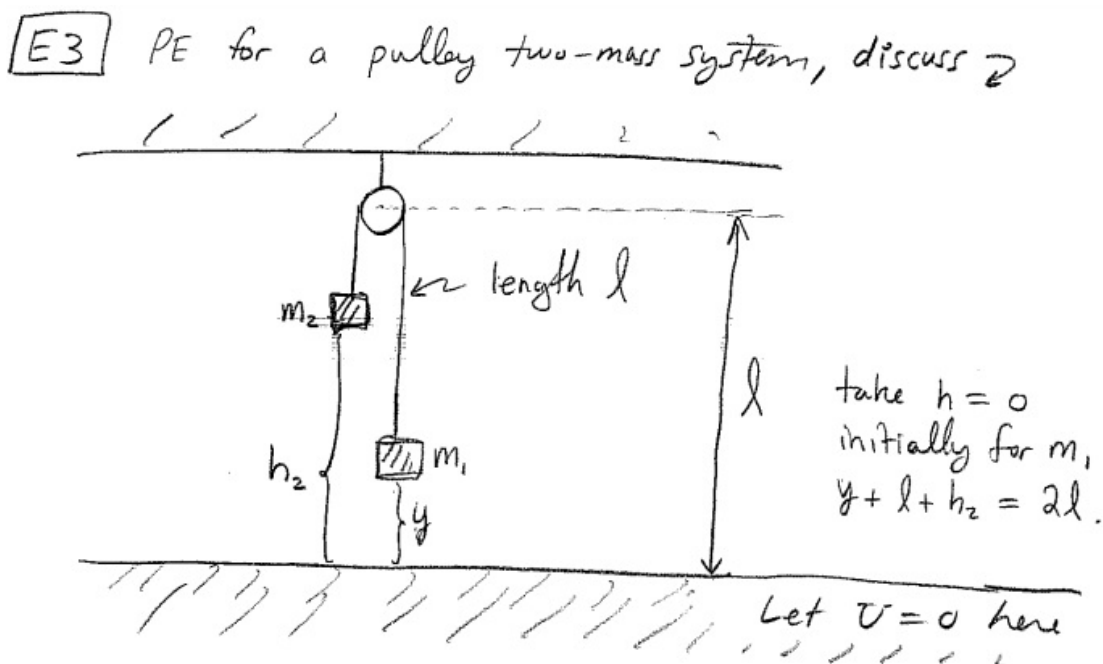 E3 PE for a pulley two-mass system, discuss
length l
m₂
l
take h = 0
initially for m₁
y + l + h₂ = 2l.
h₂
m₁
y
Let U = 0 here